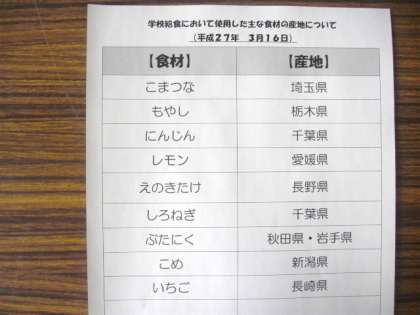 学校給食において使用した主な食材の産地について
（平成２７年　３月１６日）
【食材】　【産地】
こまつな　埼玉県
もやし　栃木県
にんじん　千葉県
レモン　愛媛県
えのきたけ　長野県
しろねぎ　千葉県
ぶたにく　秋田県・岩手県
こめ　新潟県
いちご　長崎県